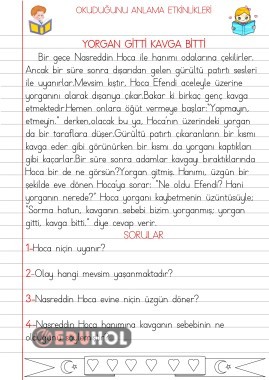 OKUDUĞUNU ANLAMA ETKİNLİKLERİ
YORGAN GİTTİ KAVGA BİTTİ
Bir gece Nasreddin Hoca ile hanımı odalarına çekilirler.
Ancak bir süre sonra dışarıdan gelen gürültü patırtı sesleri
ile uyanırlar.Mevsim kıştır, Hoca Efendi aceleyle üzerine
yorganını alarak dışarıya çıkar.Bakar ki birkaç genç kavga
etmektedir.Hemen onlara öğüt vermeye başlar:"Yapmayın,
etmeyin." derken,olacak bu ya, Hoca'nın üzerindeki yorgan
da bir taraflara düşer.Gürültü patırtı çıkaranların bir kısmı
kavga eder gibi görünürken bir kısmı da yorganı kaptıkları
gibi kaçarlar.Bir süre sonra adamlar kavgayı bıraktıklarında
Hoca bir de ne görsün?Yorgan gitmiş. Hanımı, üzgün bir
şekilde eve dönen Hoca'ya sorar: "Ne oldu Efendi? Hani
yorganın nerede?" Hoca yorganı kaybetmenin üzüntüsüyle;
"Sorma hatun, kavganın sebebi bizim yorganmış; yorgan
gitti, kavga bitti." diye cevap verir.
SORULAR
1-Hoca niçin uyanır?
2-Olay hangi mevsim yaşanmaktadır?
3-Nasreddin Hoca evine niçin üzgün döner?
4-Nasreddin Hoca hanımına kavganın sebebinin ne
olduğunu söyler?
EDUHOL